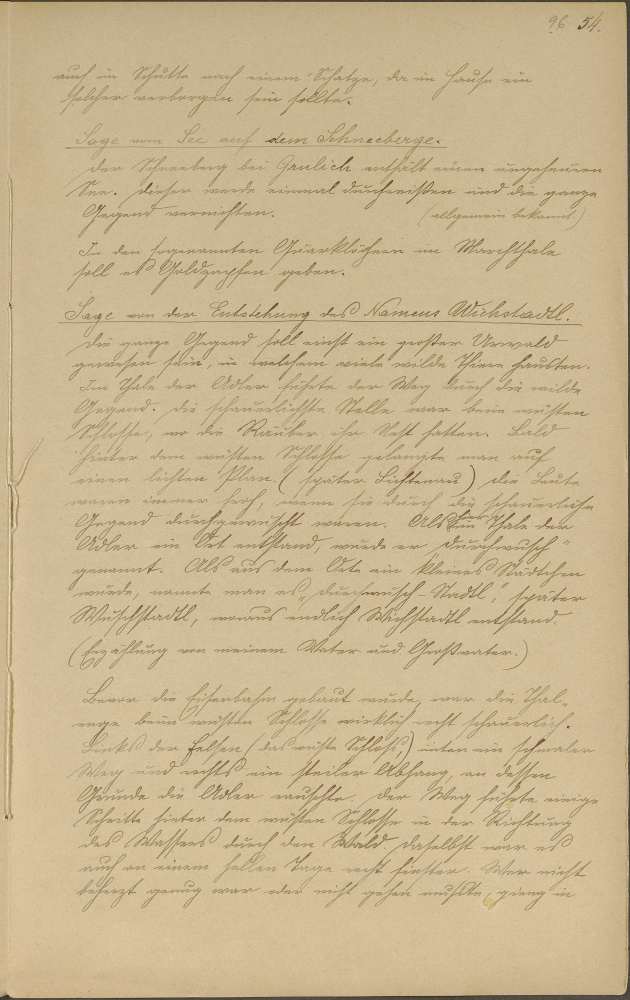 96 54.
auch im Schutte nach einem Schatze, der im Hause ein
solcher verborgen sein sollte.
Sage vom See auf dem Schneeberge.
Der Schneeberg bei Grulich enthält einen ungeheueren
See. Dieser werde einmal durchreißen und die ganze
Gegend vernichten. (allgemein bekannt.)
In den sogenannten Quarklöchern im Marchthale
soll es Goldzapfen geben.
Sage von der Entstehung des Namens Wichstadtl.
Die ganze Gegend soll einst ein großer Urwald
gewesen sein, in welchem viele wilde Thiere hausten.
Im Thale der Adler führte der Weg durch die wilde
Gegend. Die schauerlichste Stelle war beim wüsten
Schlosse, wo die Räuber ihr Nest hatten. Bald
hinter dem wüsten Schlosse gelangte man auf
einen lichten Plan. (später Lichtenau) Die Leute
waren immer froh, wenn sie durch die schauerliche
Gegend durchgewuscht waren. Als im Thale der
Adler ein Ort entstand, wurde er „Durchwusch"
genannt. Als aus dem Orte ein kleines Städtchen
wurde, nannte man es „Durchwusch-Stadtl," später
Wuschstadtl, woraus endlich Wichstadtl entstand.
(Erzählung von meinem Vater und Großvater.)
Bevor die Eisenbahn gebaut wurde, war die Thal-
enge beim wüsten Schlosse wirklich recht schauerlich.
Links der Felsen (das wüste Schloß,) unten ein schmaler
Weg und rechts ein steiler Abhang, an dessen
Grunde die Adler rauschte. Der Weg führte einige
Schritte hinter dem wüsten Schlosse in der Richtung
des Wassers durch den Wald. Daselbst war es
auch an einem hellen Tage recht finster. Wer nicht
beherzt genug war oder nicht gehen mußte, gieng in